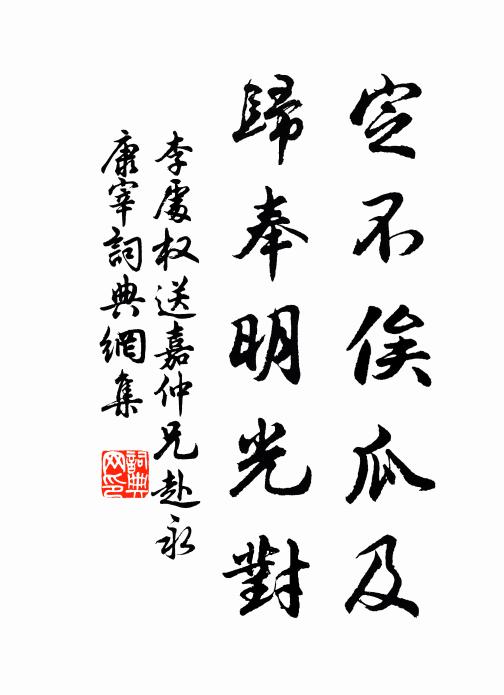 定不俟瓜及
歸奉明光對
李處权送嘉仲兄赴永
康宰詞典網集
詞典
网印